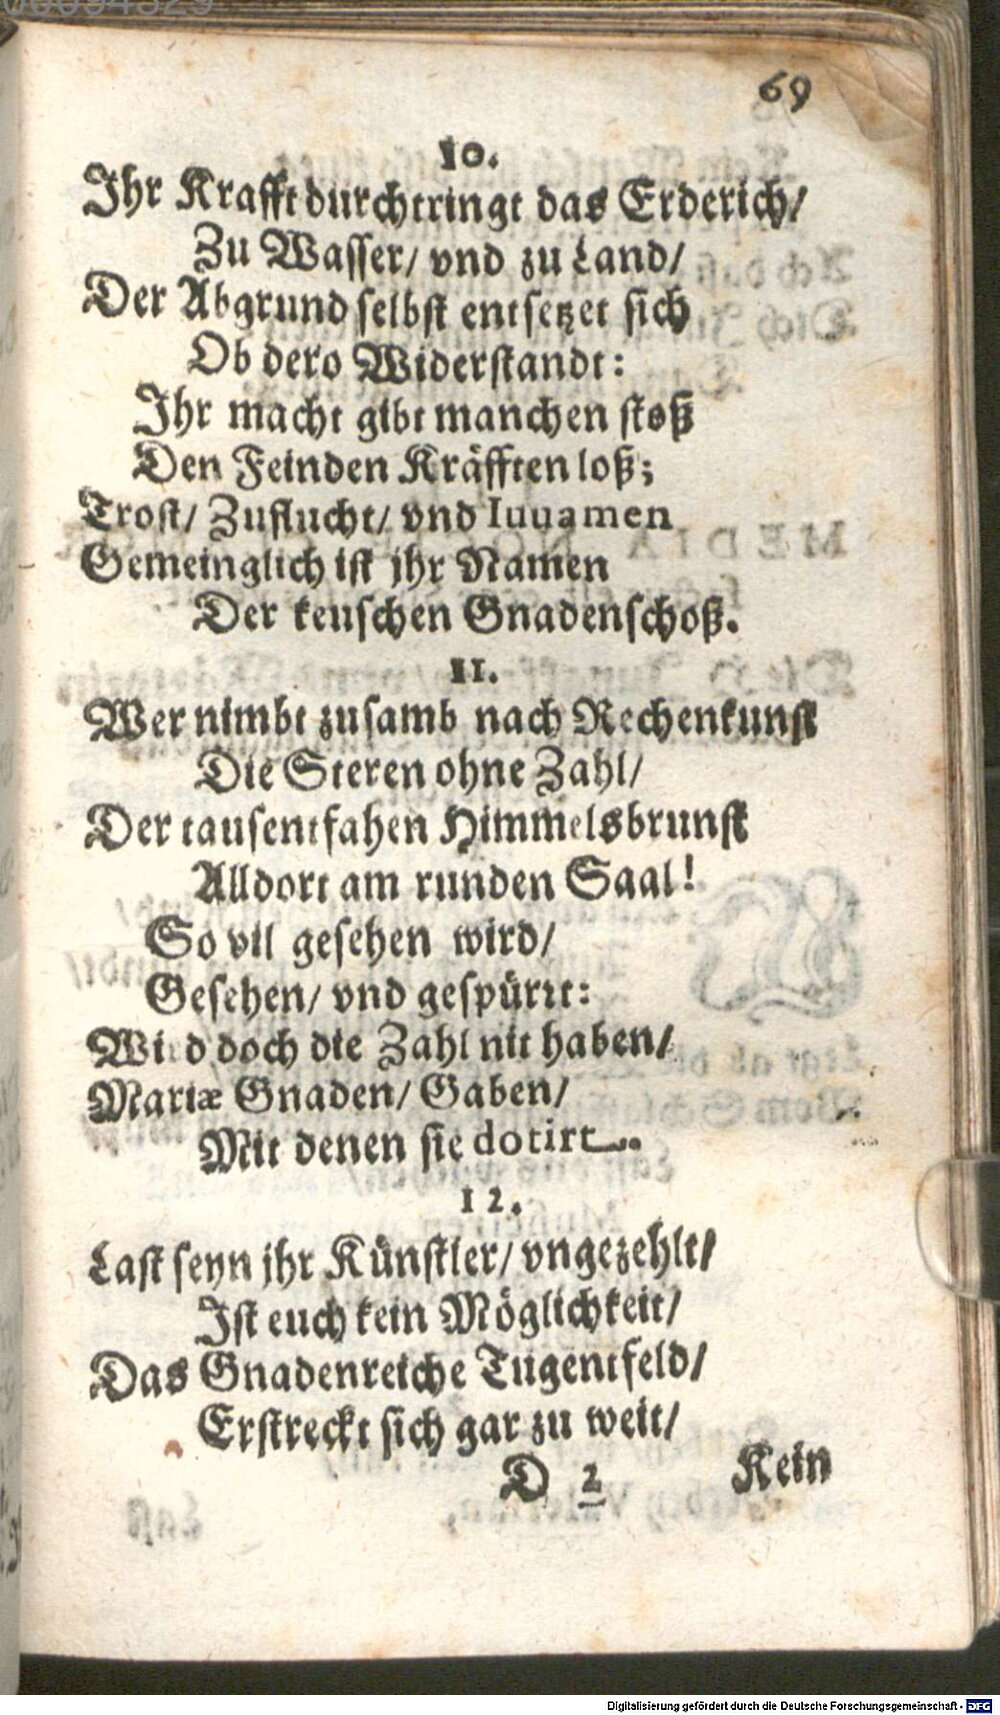 69
10.
Ihr Krafft durchtringt das Erderich/
Zu Wasser/ vnd zu Land/
Der Abgrund selbst entsetzet sich
Ob dero Widerstandt:
Ihr macht gibt manchen stoß
Den Feinden Kräfften loß;
Trost/ Zuflucht/ vnd Iuuamen
Gemeinglich ist jhr Namen
Der keuschen Gnadenschoß.
11.
Wer nimbt zusamb nach Rechenkunst
Die Steren ohne Zahl/
Der tausentfahen Himmelsbrunst
Alldort am runden Saal!
So vil gesehen wird/
Gesehen/ vnd gespürrt:
Wird doch die Zahl nit haben/
Mariæ Gnaden/ Gaben/
Mit denen sie dotirt..
12.
Last seyn jhr Künstler/ vngezehlt/
Ist euch kein Möglichkeit/
Das Gnadenreiche Tugentfeld/
Erstreckt sich gar zu weit/
D 2 Kein
Digitalisierung gefördert durch die Deutsche Forschungsgemeinschaft - DFG